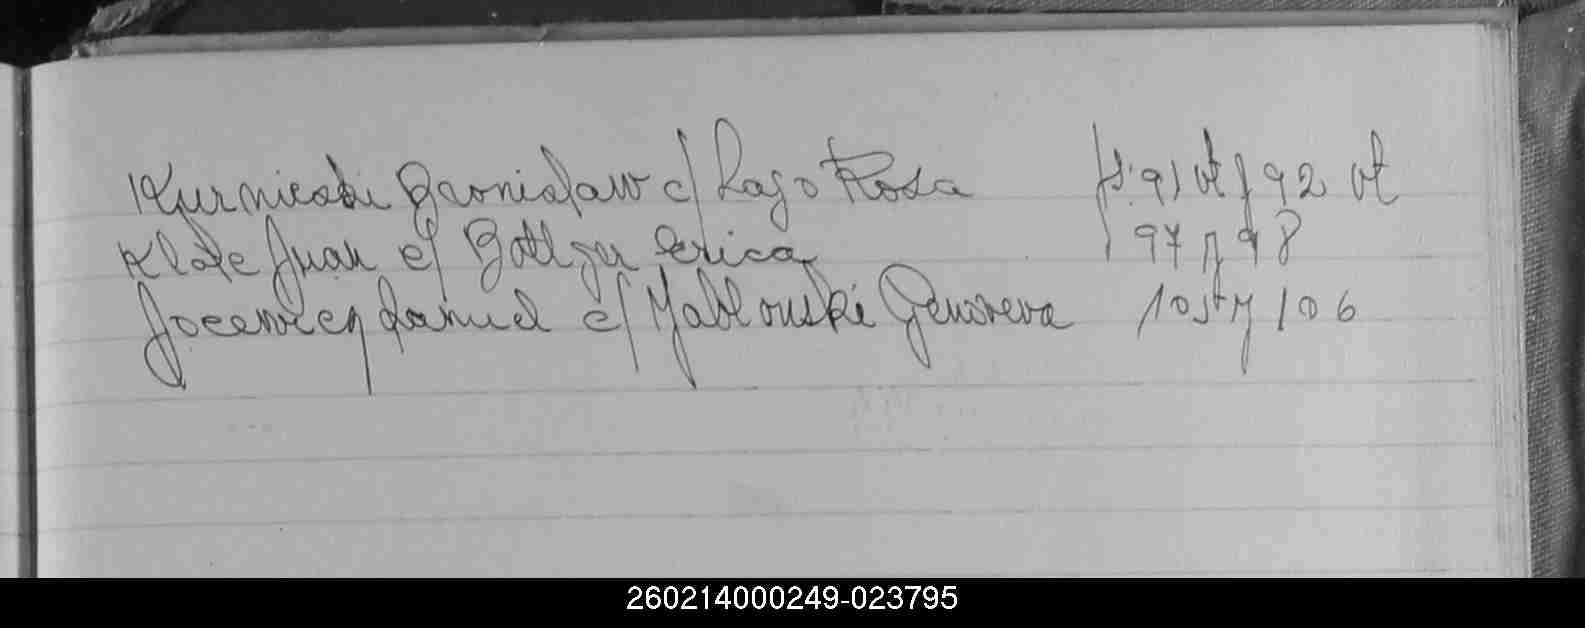 Kurnieski Bronislaw c/ Lago Rosa fs. 91 vt y 92 vt
Klate Juan c/ Erica 97 y 98
Daniel c/ Yablonski Genoveva 105 y 106
260214000249-023795